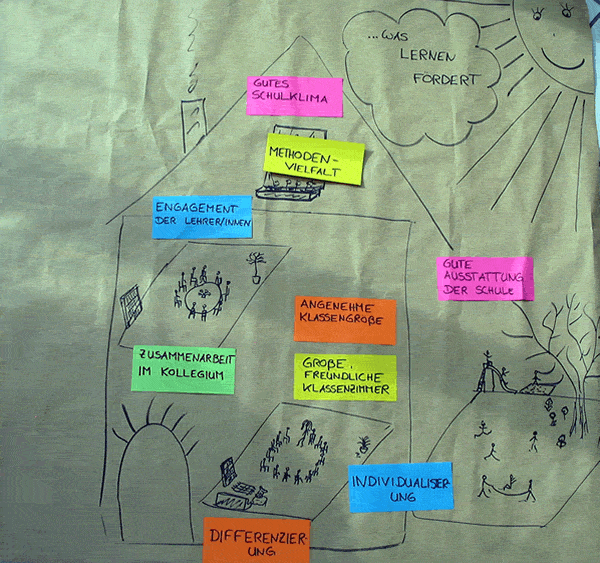 ...WAS
LERNEN
FÖRDERT
GUTES
SCHULKLIMA
METHODEN-
VIELFALT
ENGAGEMENT
DER LEHRER/INNEN
GUTE
AUSSTATTUNG
DER SCHULE
ANGENEHME
KLASSENGRÖßE
ZUSAMMENARBEIT
IM KOLLEGIUM
GROßE,
FREUNDLICHE
KLASSENZIMMER
INDIVIDUALISIER-
UNG
DIFFERENZIER-
UNG